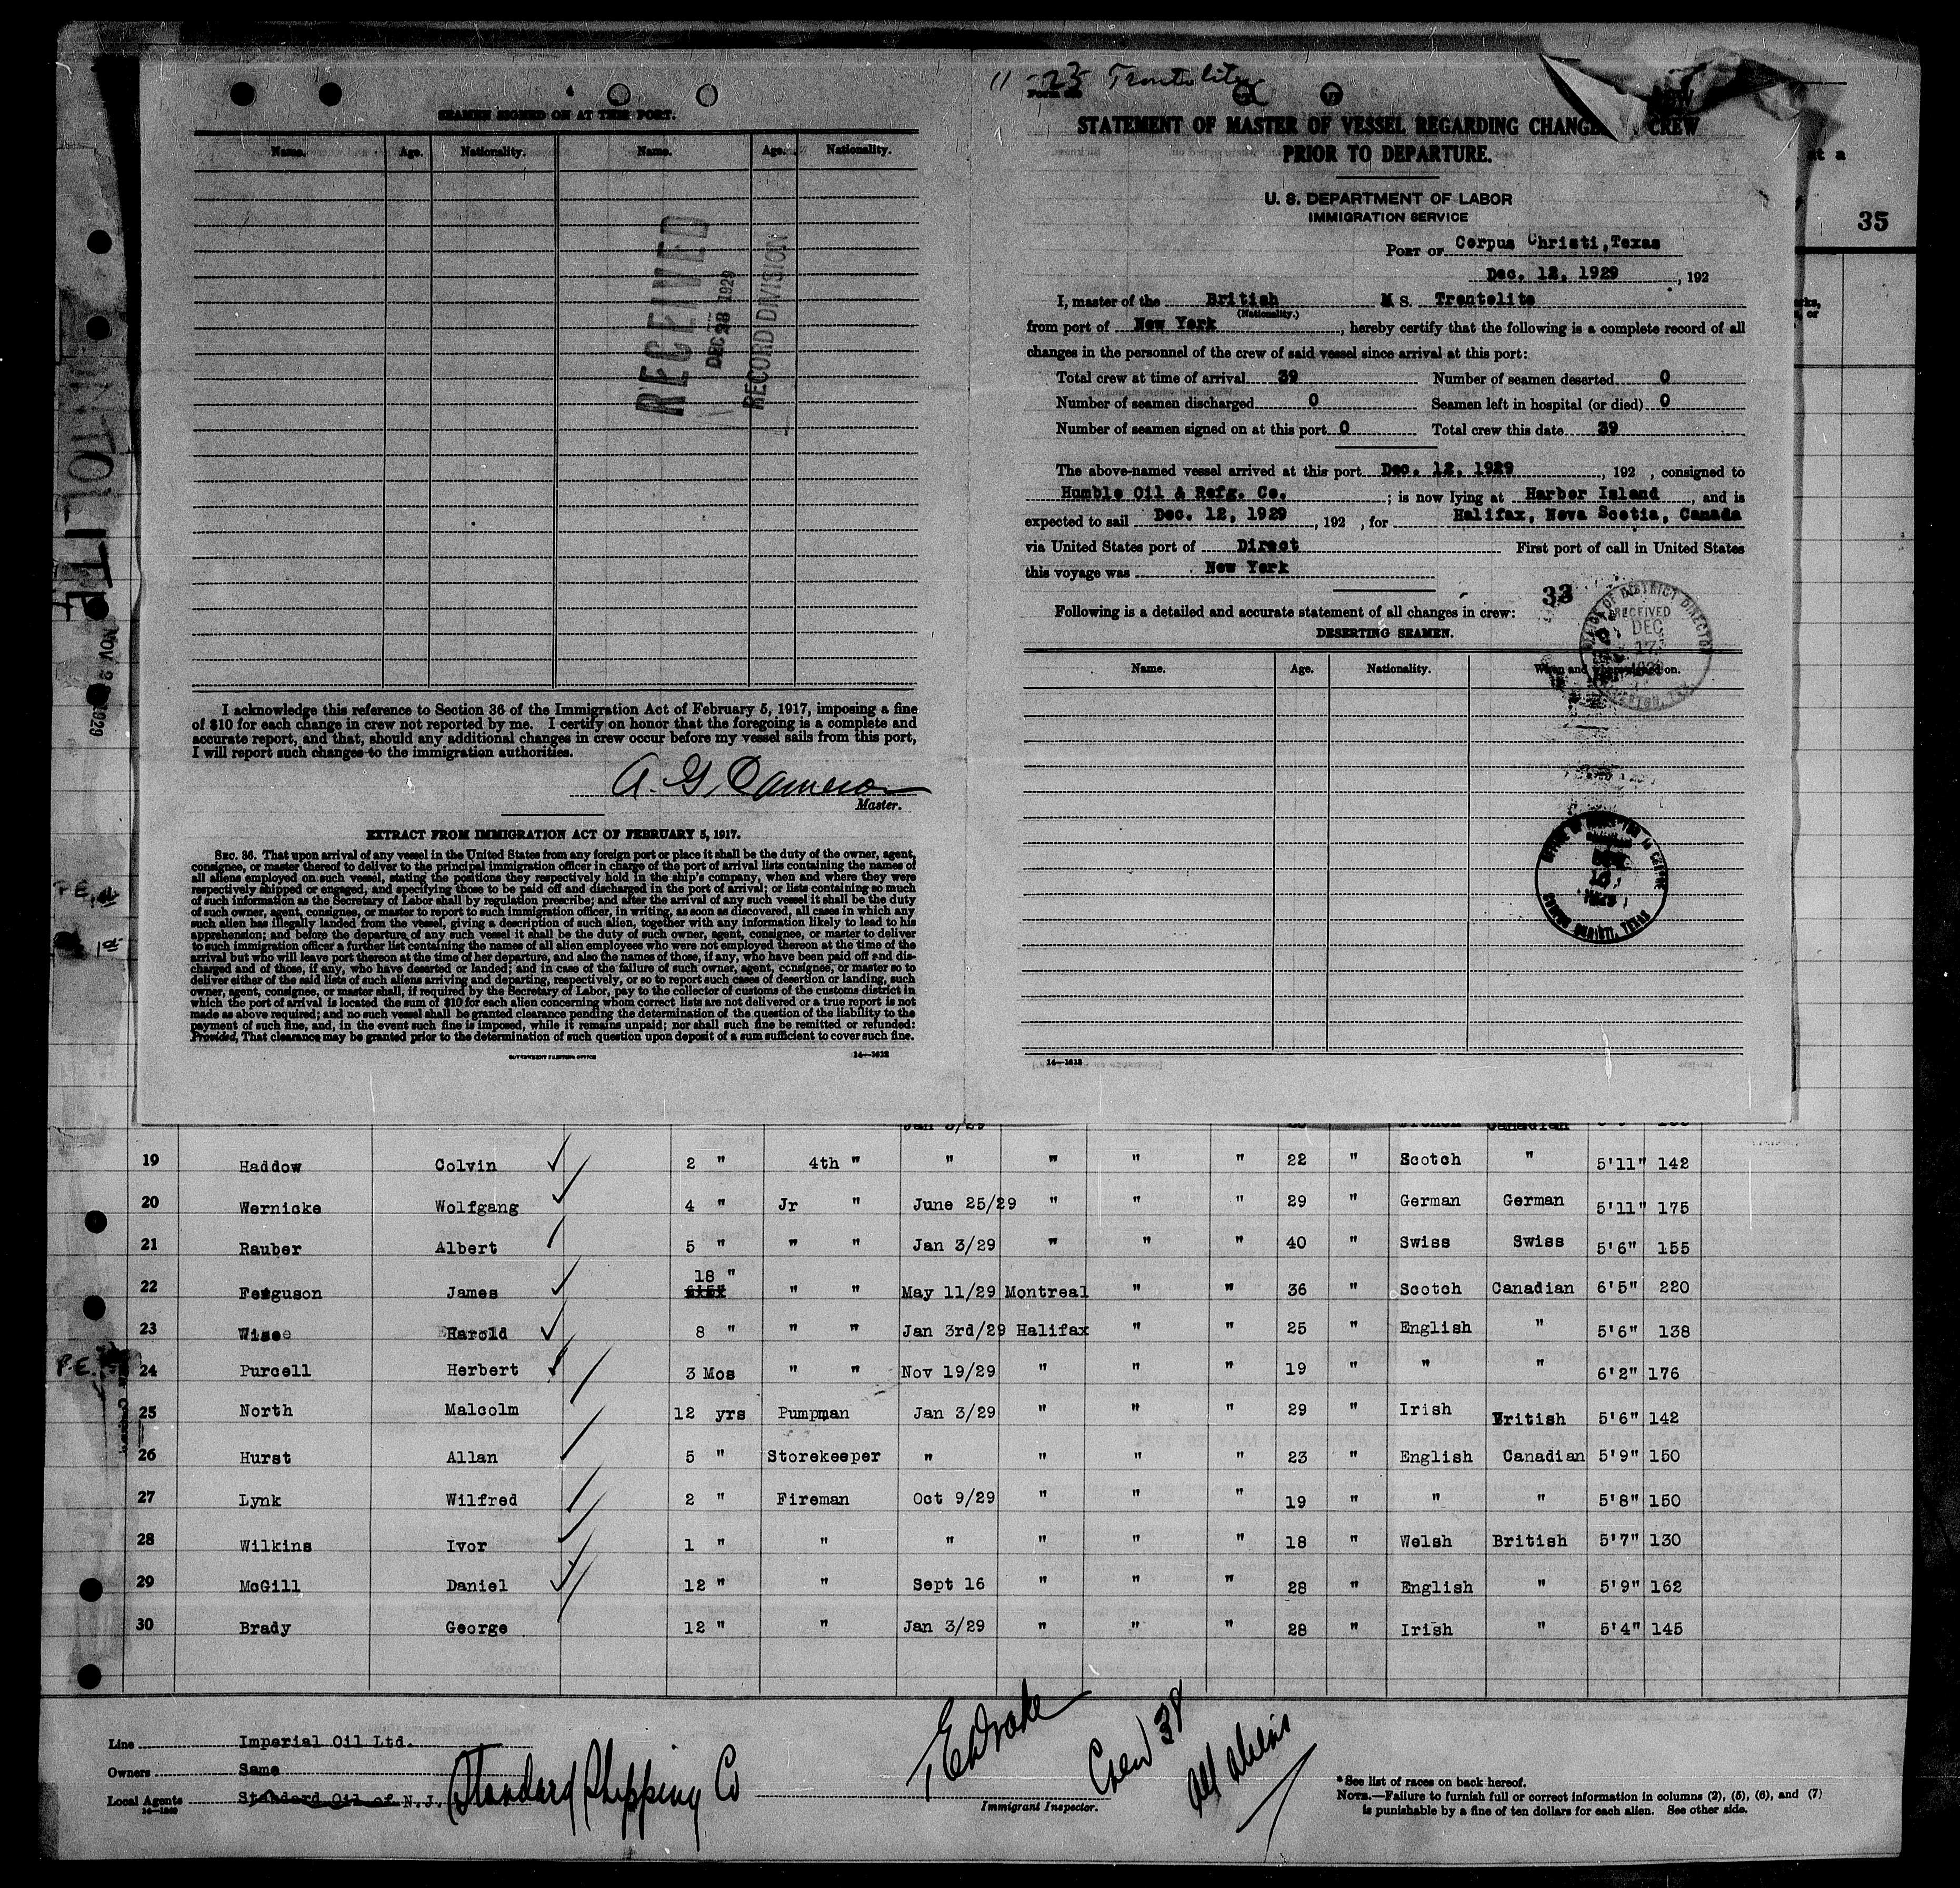 SEAMEN SIGNED ON AT THIS PORT.
Name. Age. Nationality. Name. Age. Nationality.
RECEIVED
DEC 28 1929
RECORD DIVISION
I acknowledge this reference to Section 36 of the Immigration Act of February 5, 1917, imposing a fine
of $10 for each change in crew not reported by me. I certify on honor that the foregoing is a complete and
accurate report, and that, should any additional changes in crew occur before my vessel sails from this port,
I will report such changes to the immigration authorities.
A. G. Cameron
Master.
EXTRACT FROM IMMIGRATION ACT OF FEBRUARY 5, 1917.
SEC. 36. That upon arrival of any vessel in the United States from any foreign port or place it shall be the duty of the owner, agent,
consignee, or master thereof to deliver to the principal immigration officer in charge of the port of arrival lists containing the names of
all aliens employed on such vessel, stating the positions they respectively hold in the ship's company, when and where they were
respectively shipped or engaged, and specifying those to be paid off and discharged in the port of arrival; or lists containing so much
of such information as the Secretary of Labor shall by regulation prescribe; and after the arrival of any such vessel it shall be the duty
of such owner, agent, consignee, or master to report to such immigration officer, in writing, as soon as discovered, all cases in which any
such alien has illegally landed from the vessel, giving a description of such alien, together with any information likely to lead to his
apprehension; and before the departure of any such vessel it shall be the duty of such owner, agent, consignee, or master to deliver
to such immigration officer a further list containing the names of all alien employees who were not employed thereon at the time of the
arrival but who will leave port thereon at the time of her departure, and also the names of those, if any, who have been paid off and dis-
charged and of those, if any, who have deserted or landed; and in case of the failure of such owner, agent, consignee, or master so to
deliver either of the said lists of such aliens arriving and departing, respectively, or so to report such cases of desertion or landing, such
owner, agent, consignee, or master shall, if required by the Secretary of Labor, pay to the collector of customs of the customs district in
which the port of arrival is located the sum of $10 for each alien concerning whom correct lists are not delivered or a true report is not
made as above required; and no such vessel shall be granted clearance pending the determination of the question of the liability to the
payment of such fine, and, in the event such fine is imposed, while it remains unpaid; nor shall such fine be remitted or refunded:
Provided, That clearance may be granted prior to the determination of such question upon deposit of a sum sufficient to cover such fine.
GOVERNMENT PRINTING OFFICE 14—1612
11-23 Trontolite
STATEMENT OF MASTER OF VESSEL REGARDING CHANGE CREW
PRIOR TO DEPARTURE.
U. S. DEPARTMENT OF LABOR
IMMIGRATION SERVICE
PORT OF Corpus Christi, Texas
Dec. 12, 1929, 192
I, master of the British M S. Trontolite
(Nationality.)
from port of New York, hereby certify that the following is a complete record of all
changes in the personnel of the crew of said vessel since arrival at this port:
Total crew at time of arrival 39 Number of seamen deserted 0
Number of seamen discharged 0 Seamen left in hospital (or died) 0
Number of seamen signed on at this port 0 Total crew this date 39
The above-named vessel arrived at this port Dec. 12, 1929, 192 , consigned to
Humble Oil & Refg. Co.; is now lying at Harbor Island, and is
expected to sail Dec. 12, 1929, 192 , for Halifax, Nova Scotia, Canada
via United States port of Direct First port of call in United States
this voyage was New York
33
Following is a detailed and accurate statement of all changes in crew:
DESERTING SEAMEN.
OFFICE OF DISTRICT DIRECTOR
RECEIVED
DEC
17
Name. Age. Nationality. When and where signed on.
CORPUS CHRISTI, TEXAS
14—1612
35
NTOLITE
NOV 2 1929
19 Haddow Colvin 2 " 4th " " " " " 22 " Scotch " 5'11" 142
20 Wernicke Wolfgang 4 " Jr " June 25/29 " " " 29 " German German 5'11" 175
21 Rauber Albert 5 " " " Jan 3/29 " " " 40 " Swiss Swiss 5'6" 155
22 Ferguson James 18 " " " May 11/29 Montreal " " 36 " Scotch Canadian 6'5" 220
23 Wisee Harold 8 " " " Jan 3rd/29 Halifax " " 25 " English " 5'6" 138
P.E.
24 Purcell Herbert 3 Mos " " Nov 19/29 " " " 19 " " " 6'2" 176
25 North Malcolm 12 yrs Pumpman Jan 3/29 " " " 29 " Irish British 5'6" 142
26 Hurst Allan 5 " Storekeeper " " " " 23 " English Canadian 5'9" 150
27 Lynk Wilfred 2 " Fireman Oct 9/29 " " " 19 " " " 5'8" 150
28 Wilkins Ivor 1 " " " " " " 18 " Welsh British 5'7" 130
29 McGill Daniel 12 " " Sept 16 " " " 28 " English " 5'9" 162
30 Brady George 12 " " Jan 3/29 " " " 28 " Irish " 5'4" 145
Line Imperial Oil Ltd.
Owners Same
Local Agents Standard Oil of N.J. Standard Shipping Co
14—1240
Immigrant Inspector.
Crew 38
all aliens
* See list of races on back hereof.
NOTE.—Failure to furnish full or correct information in columns (2), (5), (6), and (7)
is punishable by a fine of ten dollars for each alien. See other side.